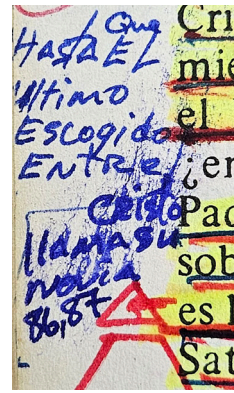 Que
Hasta EL
Ultimo
Escogido
Entre
Cristo
llama su
novia
86,87
Cri
mie
el
¿en
Pad
sob
es l
Sat